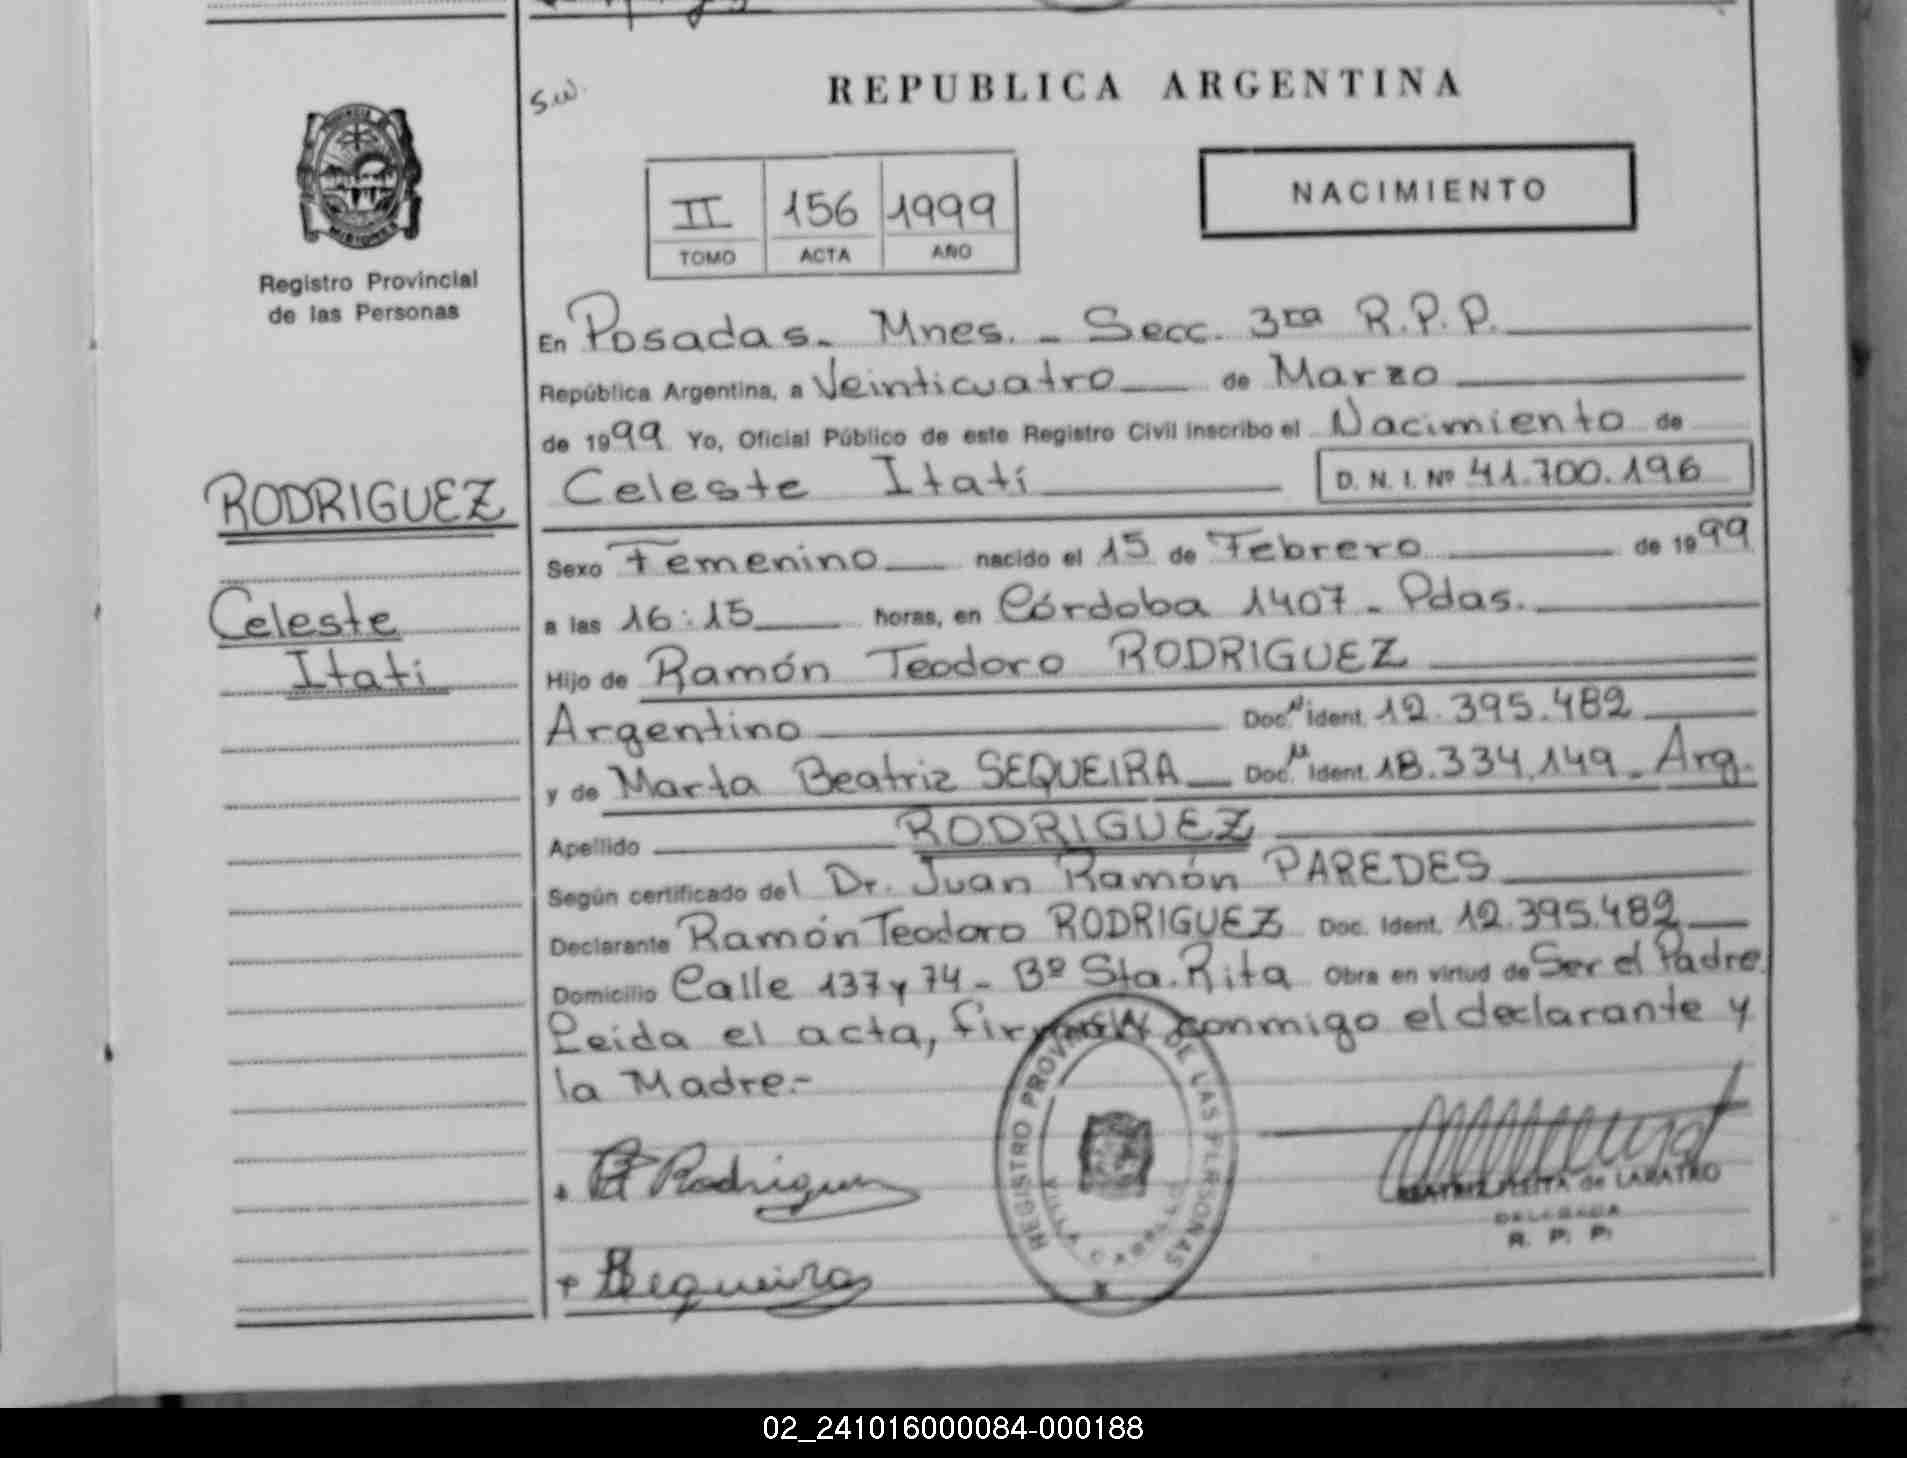 S.W.
REPUBLICA ARGENTINA
II 156 1999
TOMO ACTA AÑO
NACIMIENTO
PROVINCIA DE
MISIONES
Registro Provincial
de las Personas
RODRIGUEZ
Celeste
Itatí
En Posadas - Mnes. - Secc. 3ra R.P.P.
República Argentina, a Veinticuatro de Marzo
de 1999 Yo, Oficial Público de este Registro Civil inscribo el Nacimiento de
Celeste Itatí D. N. I. Nº 41.700.196
Sexo Femenino nacido el 15 de Febrero de 1999
a las 16:15 horas, en Córdoba 1407 - Pdas.
Hijo de Ramón Teodoro RODRIGUEZ
Argentino Doc. N Ident. 12.395.482
y de Marta Beatriz SEQUEIRA Doc. N Ident. 18.334.149 - Arg.
Apellido RODRIGUEZ
Según certificado del Dr. Juan Ramón PAREDES
Declarante Ramón Teodoro RODRIGUEZ Doc. Ident. 12.395.482
Domicilio Calle 137 y 74 - Bº Sta. Rita Obra en virtud de Ser el Padre.
Leida el acta, firman conmigo el declarante y
la Madre.-
RT Rodriguez
BSequeira
REGISTRO PROVINCIAL DE LAS PERSONAS
VILLA CABELLO
BEATRIZ PLEITA de LABATRO
DELEGADA
R. P. P.
02_241016000084-000188